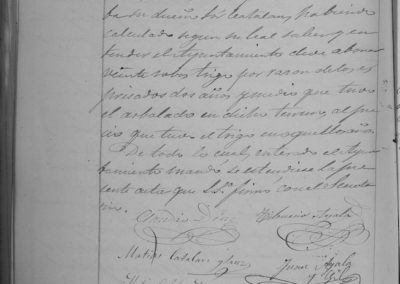 ba su dueño Sor. Catalan, habiendo
calculado segun su leal saber y en
tender el Ayuntamiento debe abonar
veinte robos trigo por razon de los es
presados dos años y medio que tuvo
el arbolado en dicho terreno, al pre
cio que tuvo el trigo en aquellos años.
De todo lo cual, enterado el Ayun
tamiento mandó se estendiese la pre
sente acta que S.S. firmó con el Secreta
rio.
Ayala
Matias Catalan y
Juan Ayala
y Gil